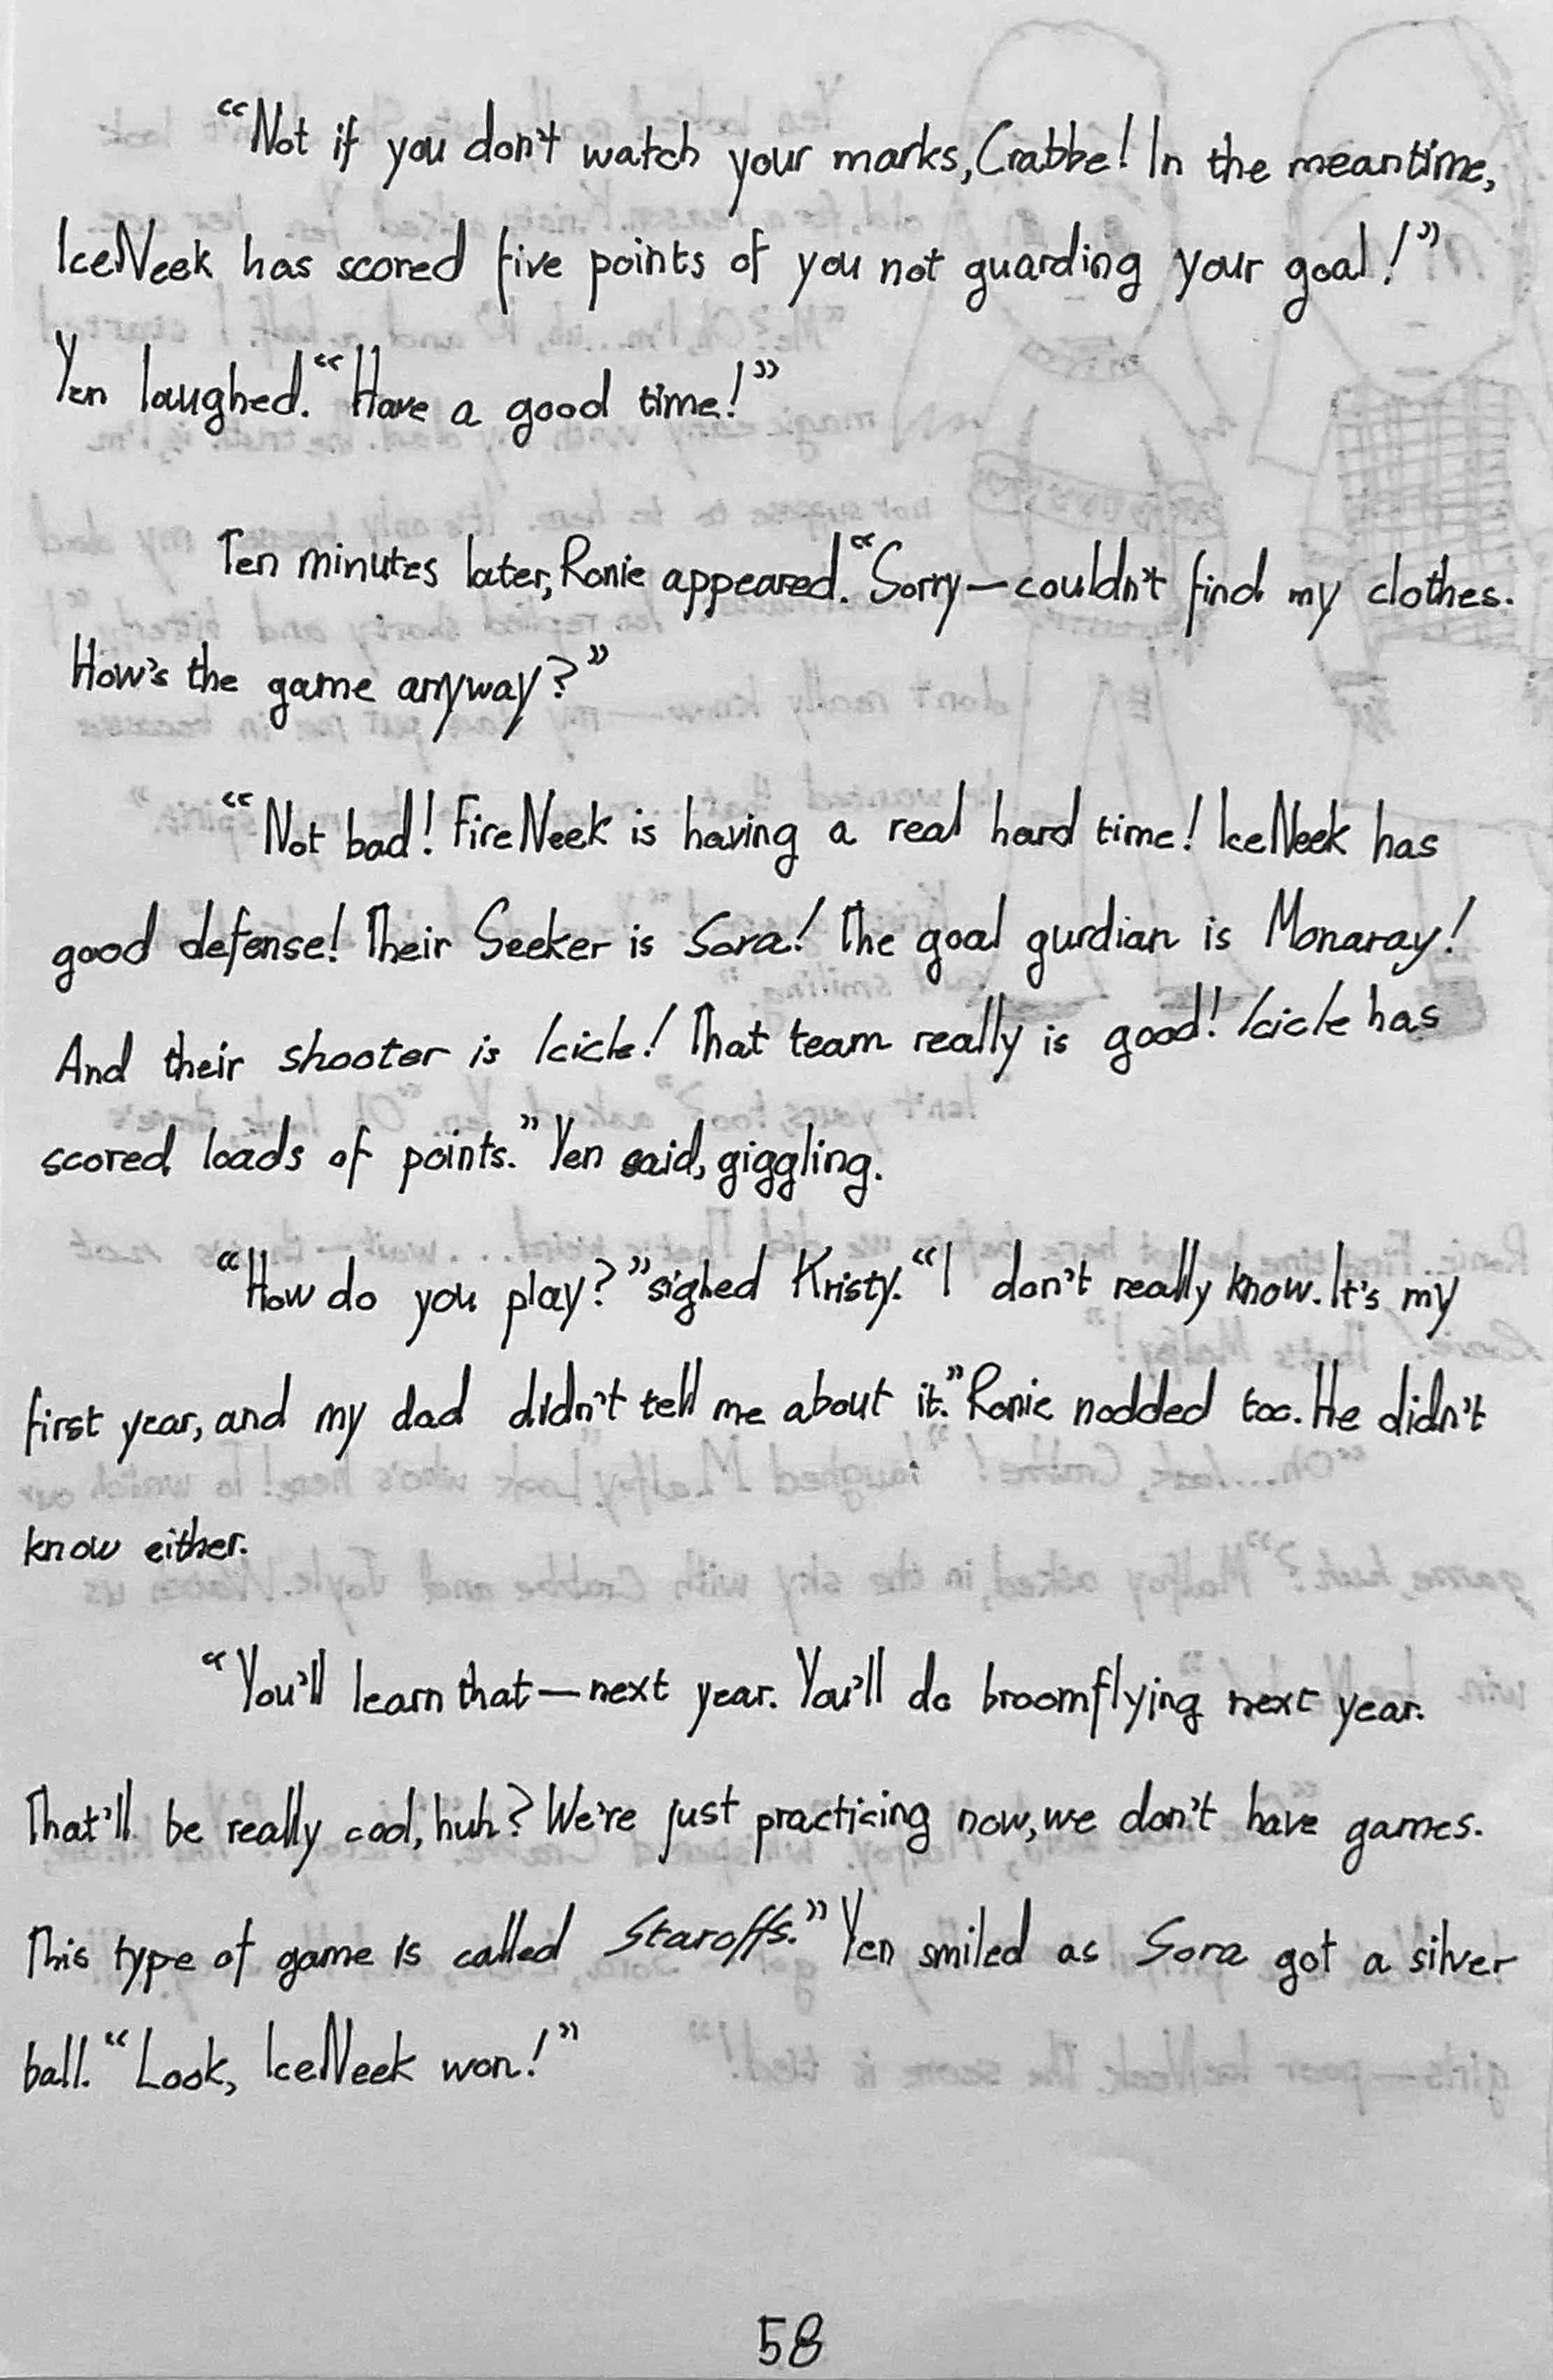 “Not if you don't watch your marks, Crabbe! In the meantime,
IceNeek has scored five points of you not guarding your goal!”
Yen laughed. “Have a good time!”
Ten minutes later, Ronie appeared. “Sorry—couldn't find my clothes.
How's the game anyway?”
“Not bad! FireNeek is having a real hard time! IceNeek has
good defense! Their Seeker is Sora! The goal gurdian is Monaray!
And their shooter is Icicle! That team really is good! Icicle has
scored loads of points.” Yen said, giggling.
“How do you play?” sighed Kristy. “I don't really know. It's my
first year, and my dad didn't tell me about it.” Ronie nodded too. He didn't
know either.
“You'll learn that—next year. You'll do broomflying next year.
That'll be really cool, huh? We're just practicing now, we don't have games.
This type of game is called Staroffs.” Yen smiled as Sora got a silver
ball. “Look, IceNeek won!”
58